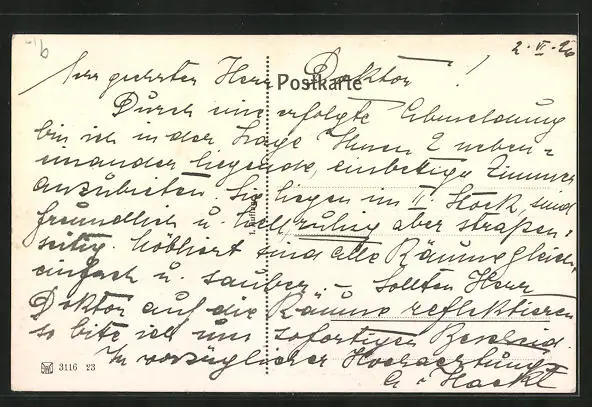 2. VI. 26
Sehr geehrter Herr Doktor!
Postkarte
Durch eine erfolgte Abmeldung
bin ich in der Lage Ihnen 2 neben-
einander liegende, einbettige Zimmer
anzubieten. Sie liegen im II. Stock sind
freundlich u. hell, ruhig aber straßen-
seitig. Möbliert sind alle Räume gleich
einfach u. sauber. – Sollten Herr
Doktor auf die Räume reflektieren
so bitte ich um sofortigen Bescheid.
In vorzüglicher Hochachtung
3116 23